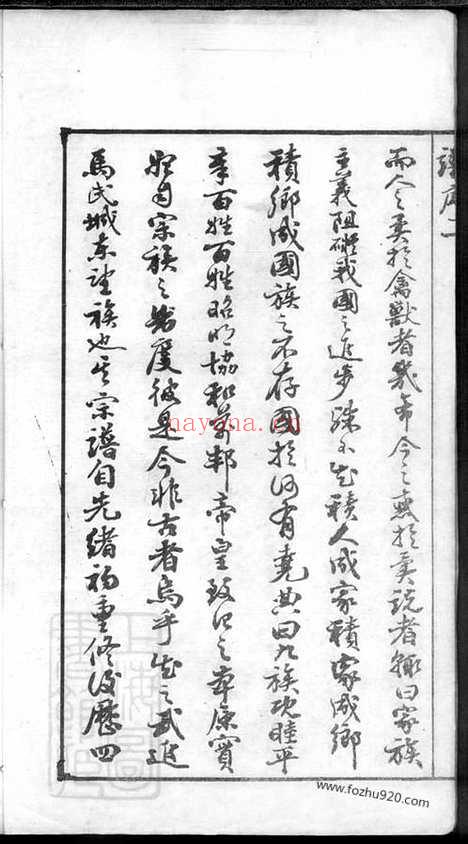 譜序二
而人之異於禽獸者幾希今之惑於異說者輒曰家族
主義阻礙我國之進步殊不知積人成家積家成鄉
積鄉成國族之不存國於何有堯典曰九族既睦平
章百姓百姓昭明協和萬邦帝皇致治之本原實
肇自宗族之
彼是今非古者烏乎知之武進
馬氏城東望族也其宗譜自先緒初重修後歷四
nayona.cn
www.fozhu920.com